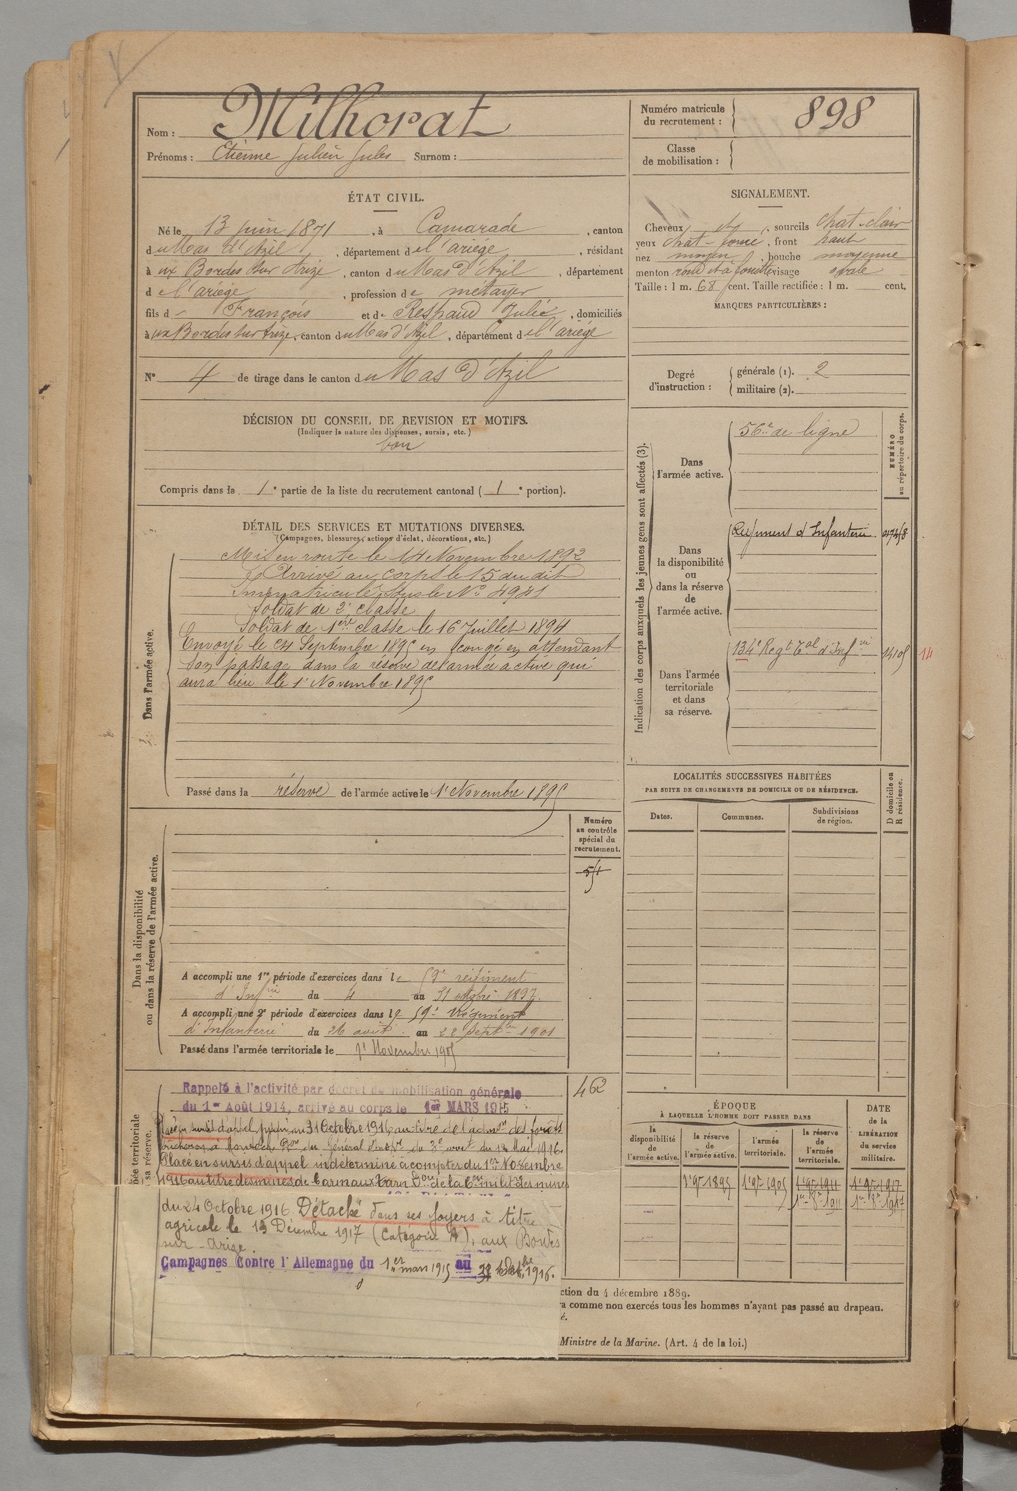 Nom : Milhorat
Prénoms : Etienne Julien Jules Surnom :
Numéro matricule du recrutement : 898
Classe de mobilisation :
ÉTAT CIVIL.
Né le 13 juin 1871, à Camarade, canton
du Mas d'Azil, département de l'ariége, résidant
à ux Bordes sur Arize, canton du Mas d'Azil, département
d e l'ariége, profession de métayer
fils de François et de Respaud Julie, domiciliés
à ux Bordes sur Arize, canton du Mas d'Azil, département de l'ariége
N° 4 de tirage dans le canton du Mas d'Azil
SIGNALEMENT.
Cheveux et sourcils chat-clair
yeux chat-fonce, front haut
nez moyen, bouche moyenne
menton rond et à fossette visage ovale
Taille : 1 m. 68 cent. Taille rectifiée : 1 m. cent.
MARQUES PARTICULIÈRES :
Degré d'instruction : générale (1). 2
militaire (2).
DÉCISION DU CONSEIL DE REVISION ET MOTIFS.
(Indiquer la nature des dispenses, sursis, etc.)
bon
Compris dans la 1e partie de la liste du recrutement cantonal (1e portion).
DÉTAIL DES SERVICES ET MUTATIONS DIVERSES.
(Campagnes, blessures, actions d'éclat, décorations, etc.)
Dans l'armée active.
Mis en route le 14 Novembre 1892
Arrivé au corps le 15 du dit
Immatriculé sous le No 4941
Soldat de 2e classe
Soldat de 1ère classe le 16 Juillet 1894
Envoyé le 24 Septembre 1895 en congé en attendant
son passage dans la réserve de l'armée active qui
aura lieu le 1er Novembre 1895
Passé dans la réserve de l'armée active le 1er Novembre 1895
Indication des corps auxquels les jeunes gens sont affectés (3).
NUMÉRO au répertoire du corps.
Dans l'armée active.
de ligne
Dans la disponibilité ou dans la réserve de l'armée active.
Régiment d'Infanterie
Dans l'armée territoriale et dans sa réserve.
134e Regt Tal d'Infrie
14
LOCALITÉS SUCCESSIVES HABITÉES
PAR SUITE DE CHANGEMENTS DE DOMICILE OU DE RÉSIDENCE.
Dates. Communes. Subdivisions de région.
D domicile ou R résidence.
Dans la disponibilité ou dans la réserve de l'armée active.
Numéro au contrôle spécial du recrutement.
A accompli une 1re période d'exercices dans le 59e régiment
d'Infrie du 4 au 31 octobre 1897.
A accompli une 2e période d'exercices dans le 59e Régiment
d'Infanterie du 26 août au 22 septbre 1901
Passé dans l'armée territoriale le 1er Novembre 1905
Rappelé à l'activité par décret de mobilisation générale
du 1er Août 1914, arrivé au corps le 1er MARS 1915
Placé en sursis d'appel jusqu'au 31 Octobre 1916 au titre de
du Général du 14 Mai 1916.
Placé en sursis d'appel indéterminé à compter du 1er Novembre
1916 au titre des mines de Carmaux Tarn
du 24 Octobre 1916 Détaché dans ses foyers à titre
agricole le 13 Décembre 1917 (Catégorie A), aux Bordes
sur-Arize.
Campagnes Contre l'Allemagne du 1er mars 1915 au 1916.
ÉPOQUE
À LAQUELLE L'HOMME DOIT PASSER DANS
la disponibilité de l'armée active.
la réserve de l'armée active.
l'armée territoriale.
la réserve de l'armée territoriale.
DATE de la LIBÉRATION du service militaire.
1er 9bre 1895 1er 9bre 1905 1er 9bre 1911 1er 9bre 1917
ction du 4 décembre 1889.
a comme non exercés tous les hommes n'ayant pas passé au drapeau.
é.
Ministre de la Marine. (Art. 4 de la loi.)